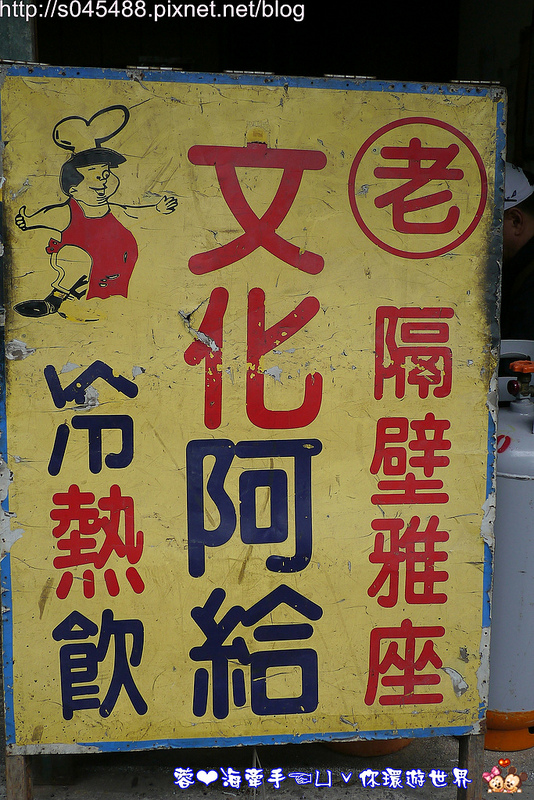 http://s045488.pixnet.net/blog
老
隔壁雅座
文化阿給
冷熱飲
蓉❤海牽手☜ㄩˇ你環遊世界